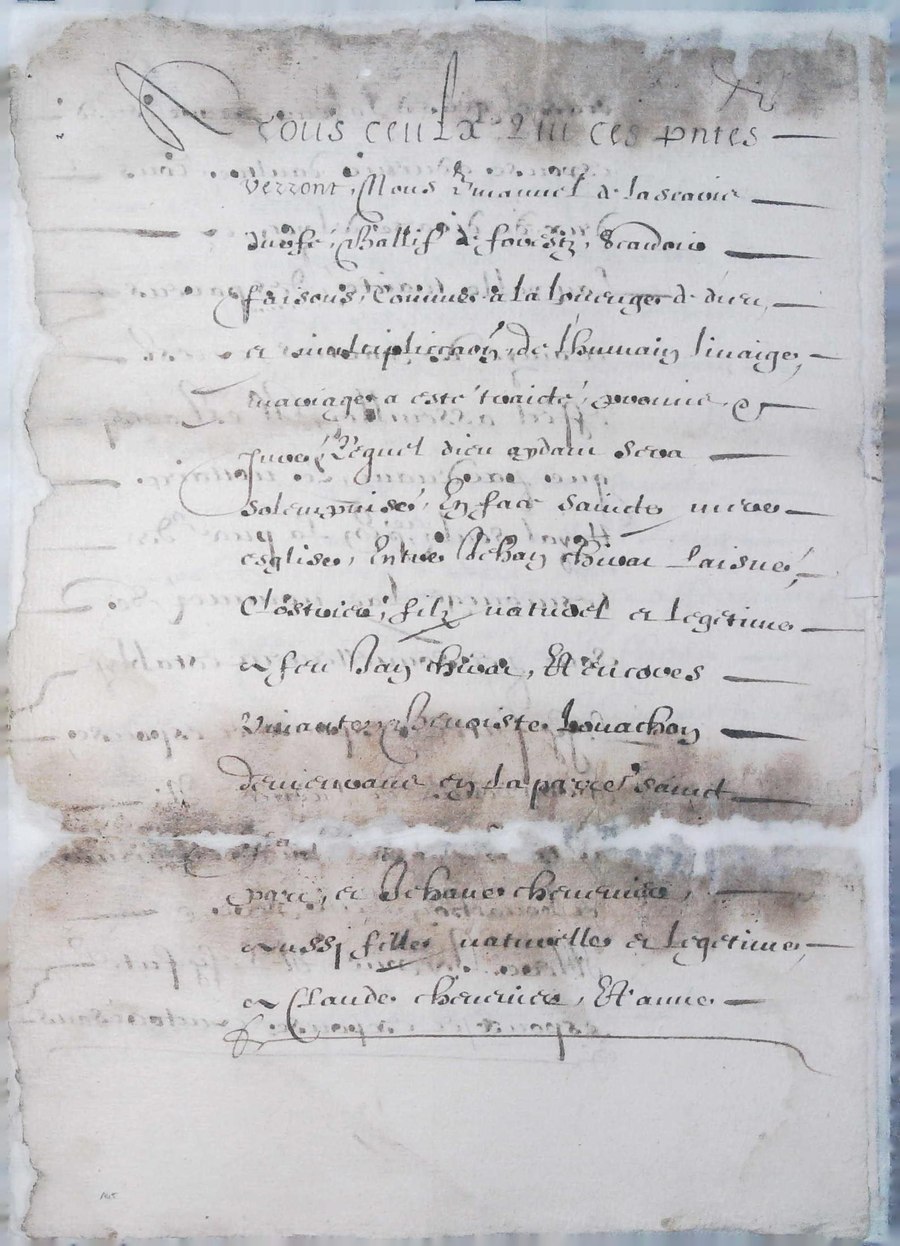 A tous ceulx qui ces pntes
verront, Nous Emanuel de lascaris
durfe, Baillif de forestz, Scavoir
faisons, Comme a la louenge de dieu,
et multipliccaõn de lhumain linaige,
mariage a esté traicté, promis, et
Juré, Lequel dieu aydant sera
solempnisé, En face saincte mere
esglise, Entre Jehan chivat Laisné,
filz naturel et legetime
a feu Jan chivat, Et encores
vivante Benoiste
demeurant en la parcẽ sainct
part, et Jehane cheverier,
aussi fille naturelle et legetime
a Claude cheverier, Et anne